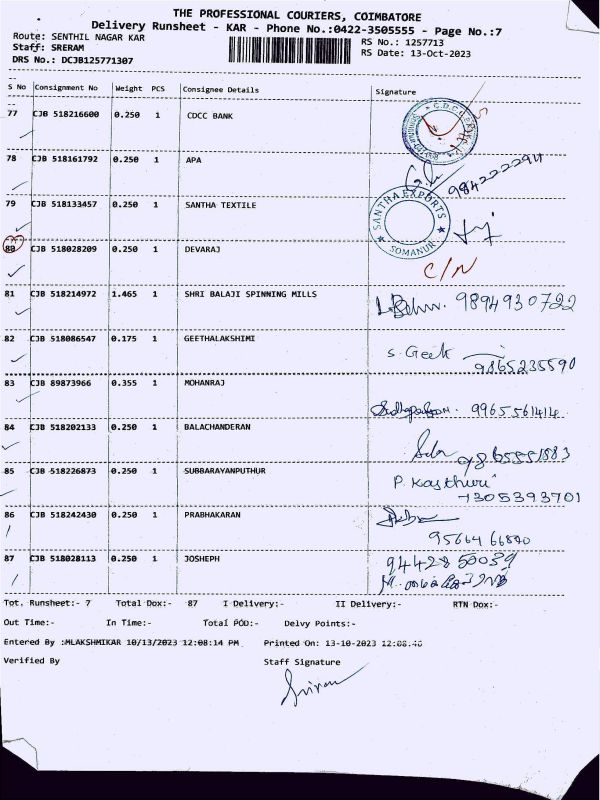 THE PROFESSIONAL COURIERS, COIMBATORE
Delivery Runsheet - KAR - Phone No.:0422-3505555 - Page No.:7
Route: SENTHIL NAGAR KAR
RS No.: 1257713
Staff: SRERAM
RS Date: 13-Oct-2023
DRS No.: DCJB125771307
S No Consignment No Weight PCS Consignee Details Signature
77 CJB 518216600 0.250 1 CDCC BANK
78 CJB 518161792 0.250 1 APA
9842222914
79 CJB 518133457 0.250 1 SANTHA TEXTILE
SANTHA EXPORTS
SOMANUR
80 CJB 518028209 0.250 1 DEVARAJ
C/N
81 CJB 518214972 1.465 1 SHRI BALAJI SPINNING MILLS
9894930722
82 CJB 518086547 0.175 1 GEETHALAKSHIMI
S. Geeth
9865235590
83 CJB 89873966 0.355 1 MOHANRAJ
9965561414
84 CJB 518202133 0.250 1 BALACHANDERAN
9865551883
85 CJB 518226873 0.250 1 SUBBARAYANPUTHUR
P. Kasthuri
7305393701
86 CJB 518242430 0.250 1 PRABHAKARAN
9566466840
87 CJB 518028113 0.250 1 JOSHEPH
9442850039
Tot. Runsheet:- 7 Total Dox:- 87 I Delivery:- II Delivery:- RTN Dox:-
Out Time:- In Time:- Total POD:- Delvy Points:-
Entered By :MLAKSHMIKAR 10/13/2023 12:08:14 PM Printed On: 13-10-2023 12:08:46
Verified By Staff Signature